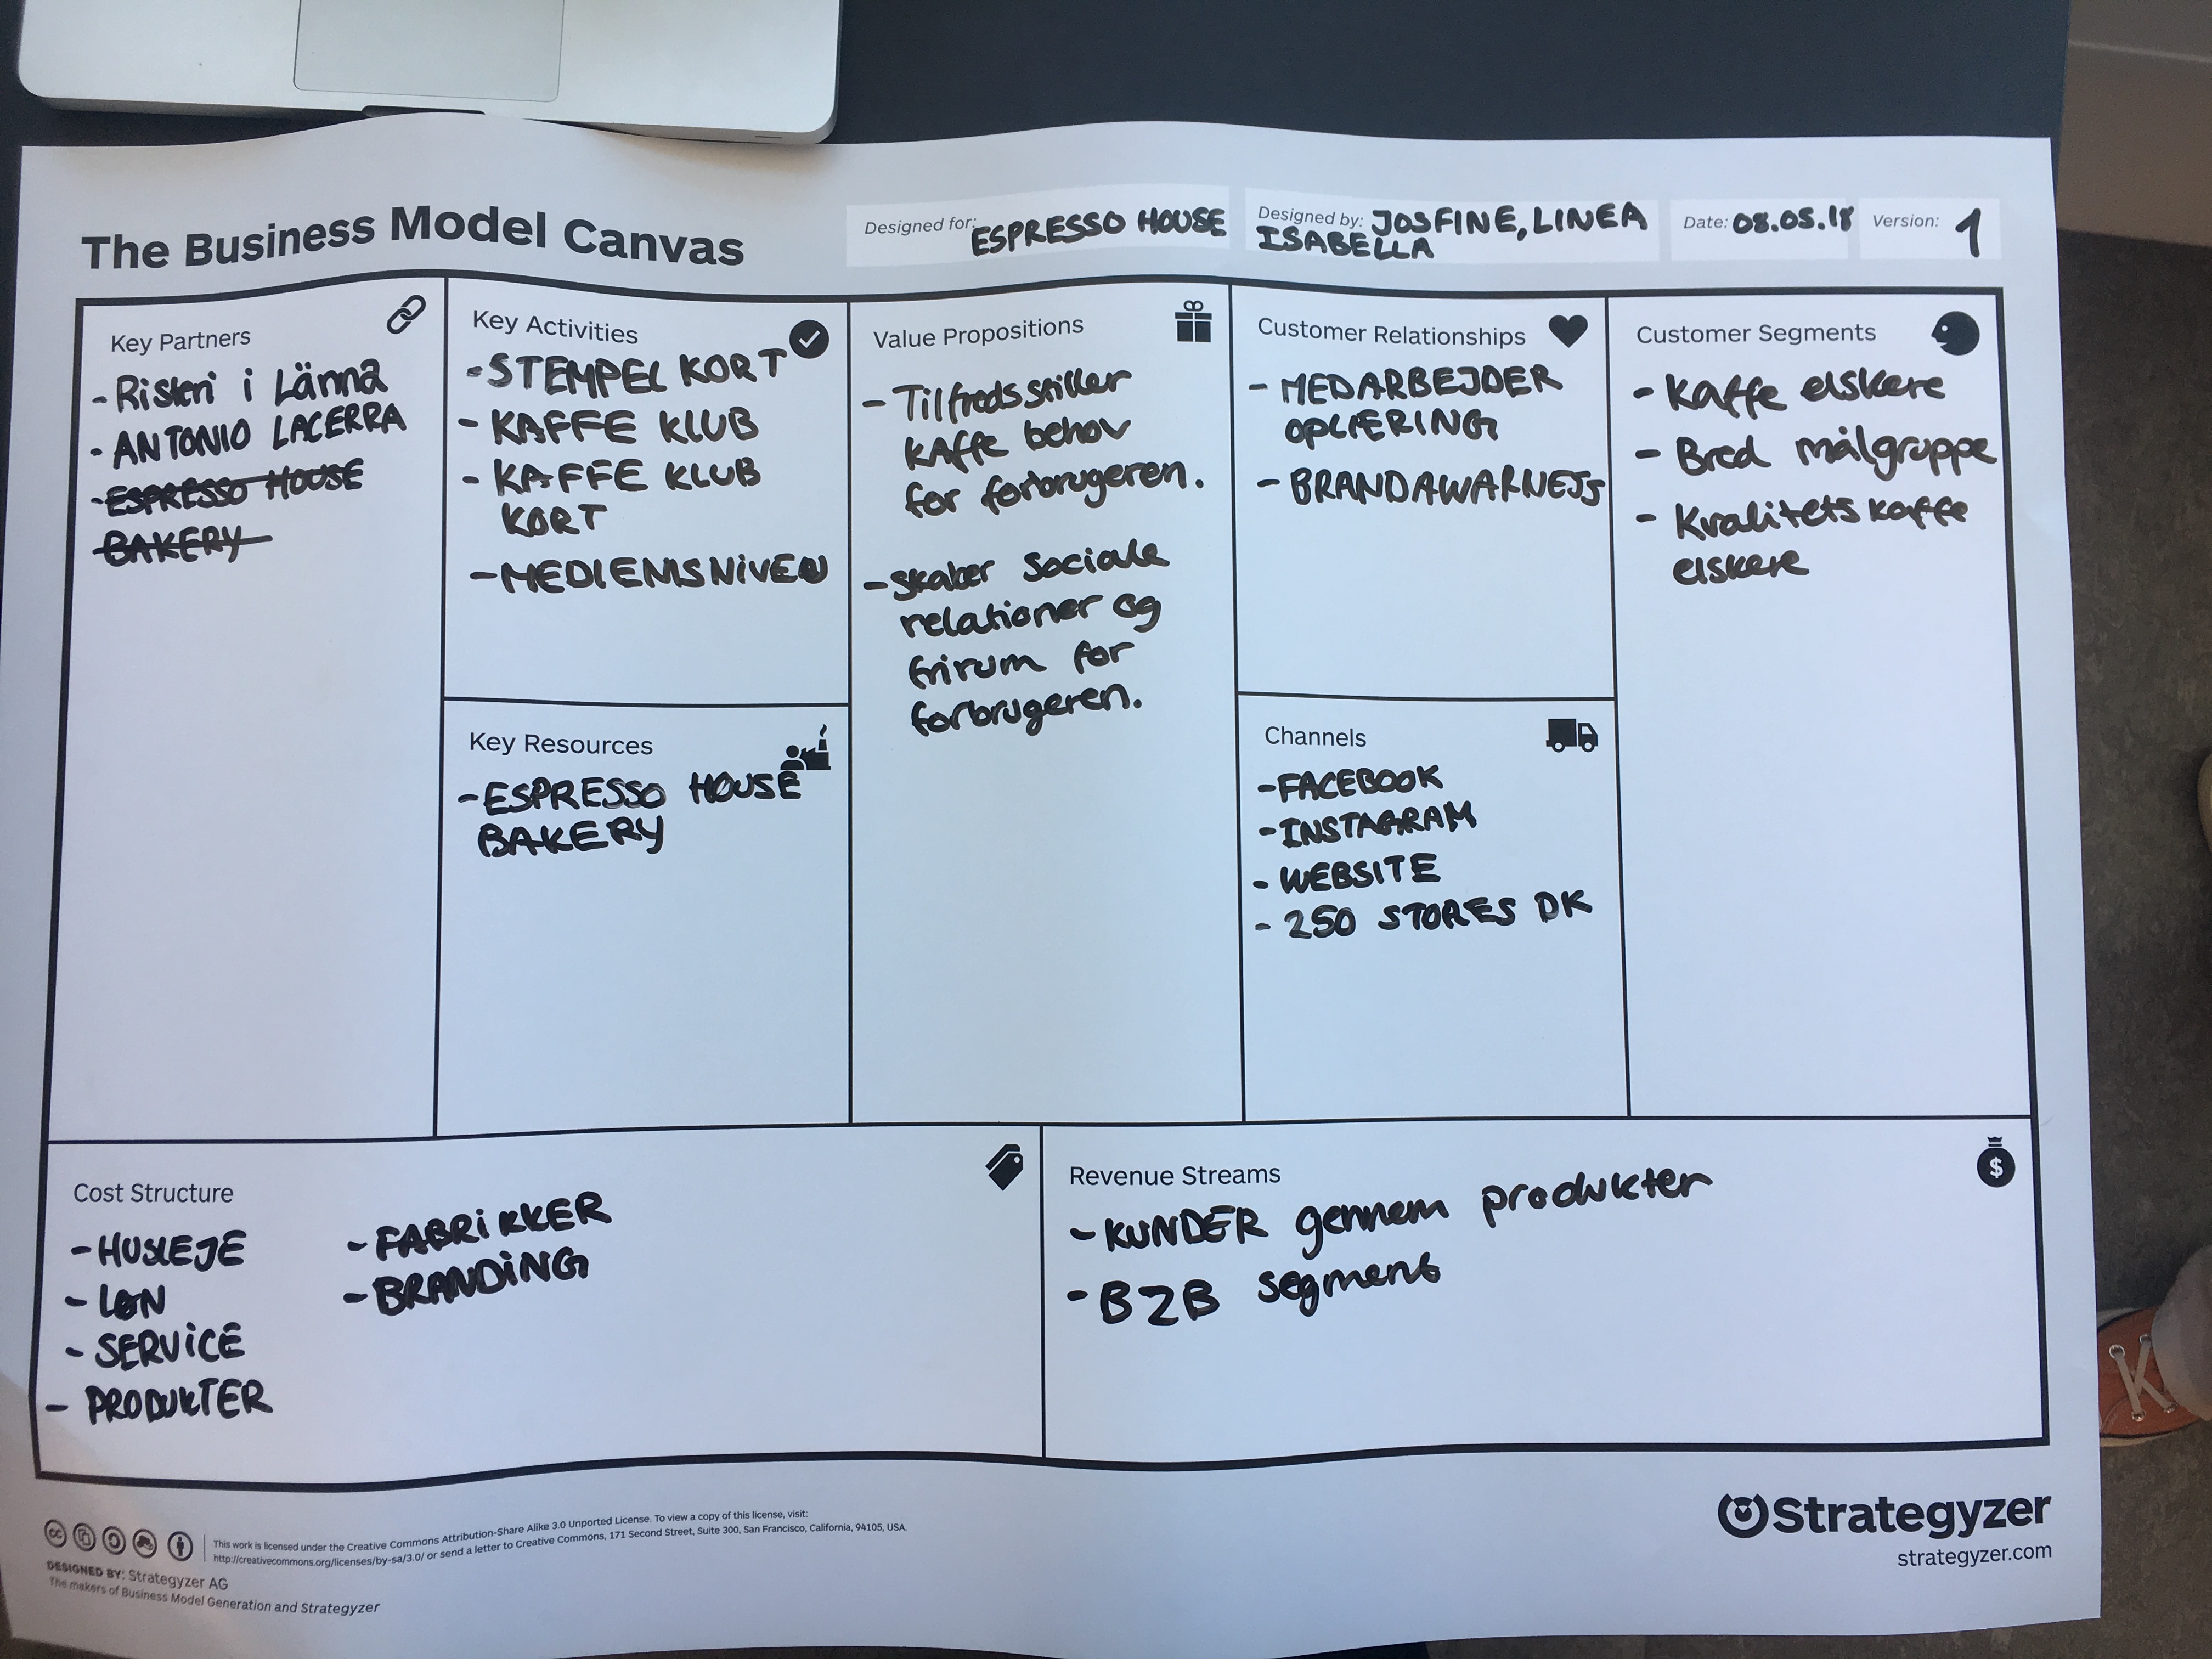 The Business Model Canvas
Designed for: ESPRESSO HOUSE
Designed by: JOSFINE, LINEA
ISABELLA
Date: 08.05.18
Version: 1
Key Partners
- Risteri i Länna
- ANTONIO LACERRA
- ESPRESSO HOUSE
- BAKERY
Key Activities
- STEMPEL KORT
- KAFFE KLUB
- KAFFE KLUB
KORT
- MEDLEMSNIVEU
Key Resources
- ESPRESSO HOUSE
BAKERY
Value Propositions
- Tilfredsstiller
kaffe behov
for forbrugeren.
- skaber sociale
relationer og
frirum for
forbrugeren.
Customer Relationships
- MEDARBEJDER
OPLÆRING
- BRANDAWARNESS
Channels
- FACEBOOK
- INSTAGRAM
- WEBSITE
- 250 STORES DK
Customer Segments
- Kaffe elskere
- Bred målgruppe
- Kvalitets kaffe
elskere
Cost Structure
- HUSLEJE
- LØN
- SERVICE
- PRODUKTER
- FABRIKKER
- BRANDING
Revenue Streams
- KUNDER gennem produkter
- B2B segment
$
cc
This work is licensed under the Creative Commons Attribution-Share Alike 3.0 Unported License. To view a copy of this license, visit:
http://creativecommons.org/licenses/by-sa/3.0/ or send a letter to Creative Commons, 171 Second Street, Suite 300, San Francisco, California, 94105, USA.
DESIGNED BY: Strategyzer AG
The makers of Business Model Generation and Strategyzer
Strategyzer
strategyzer.com